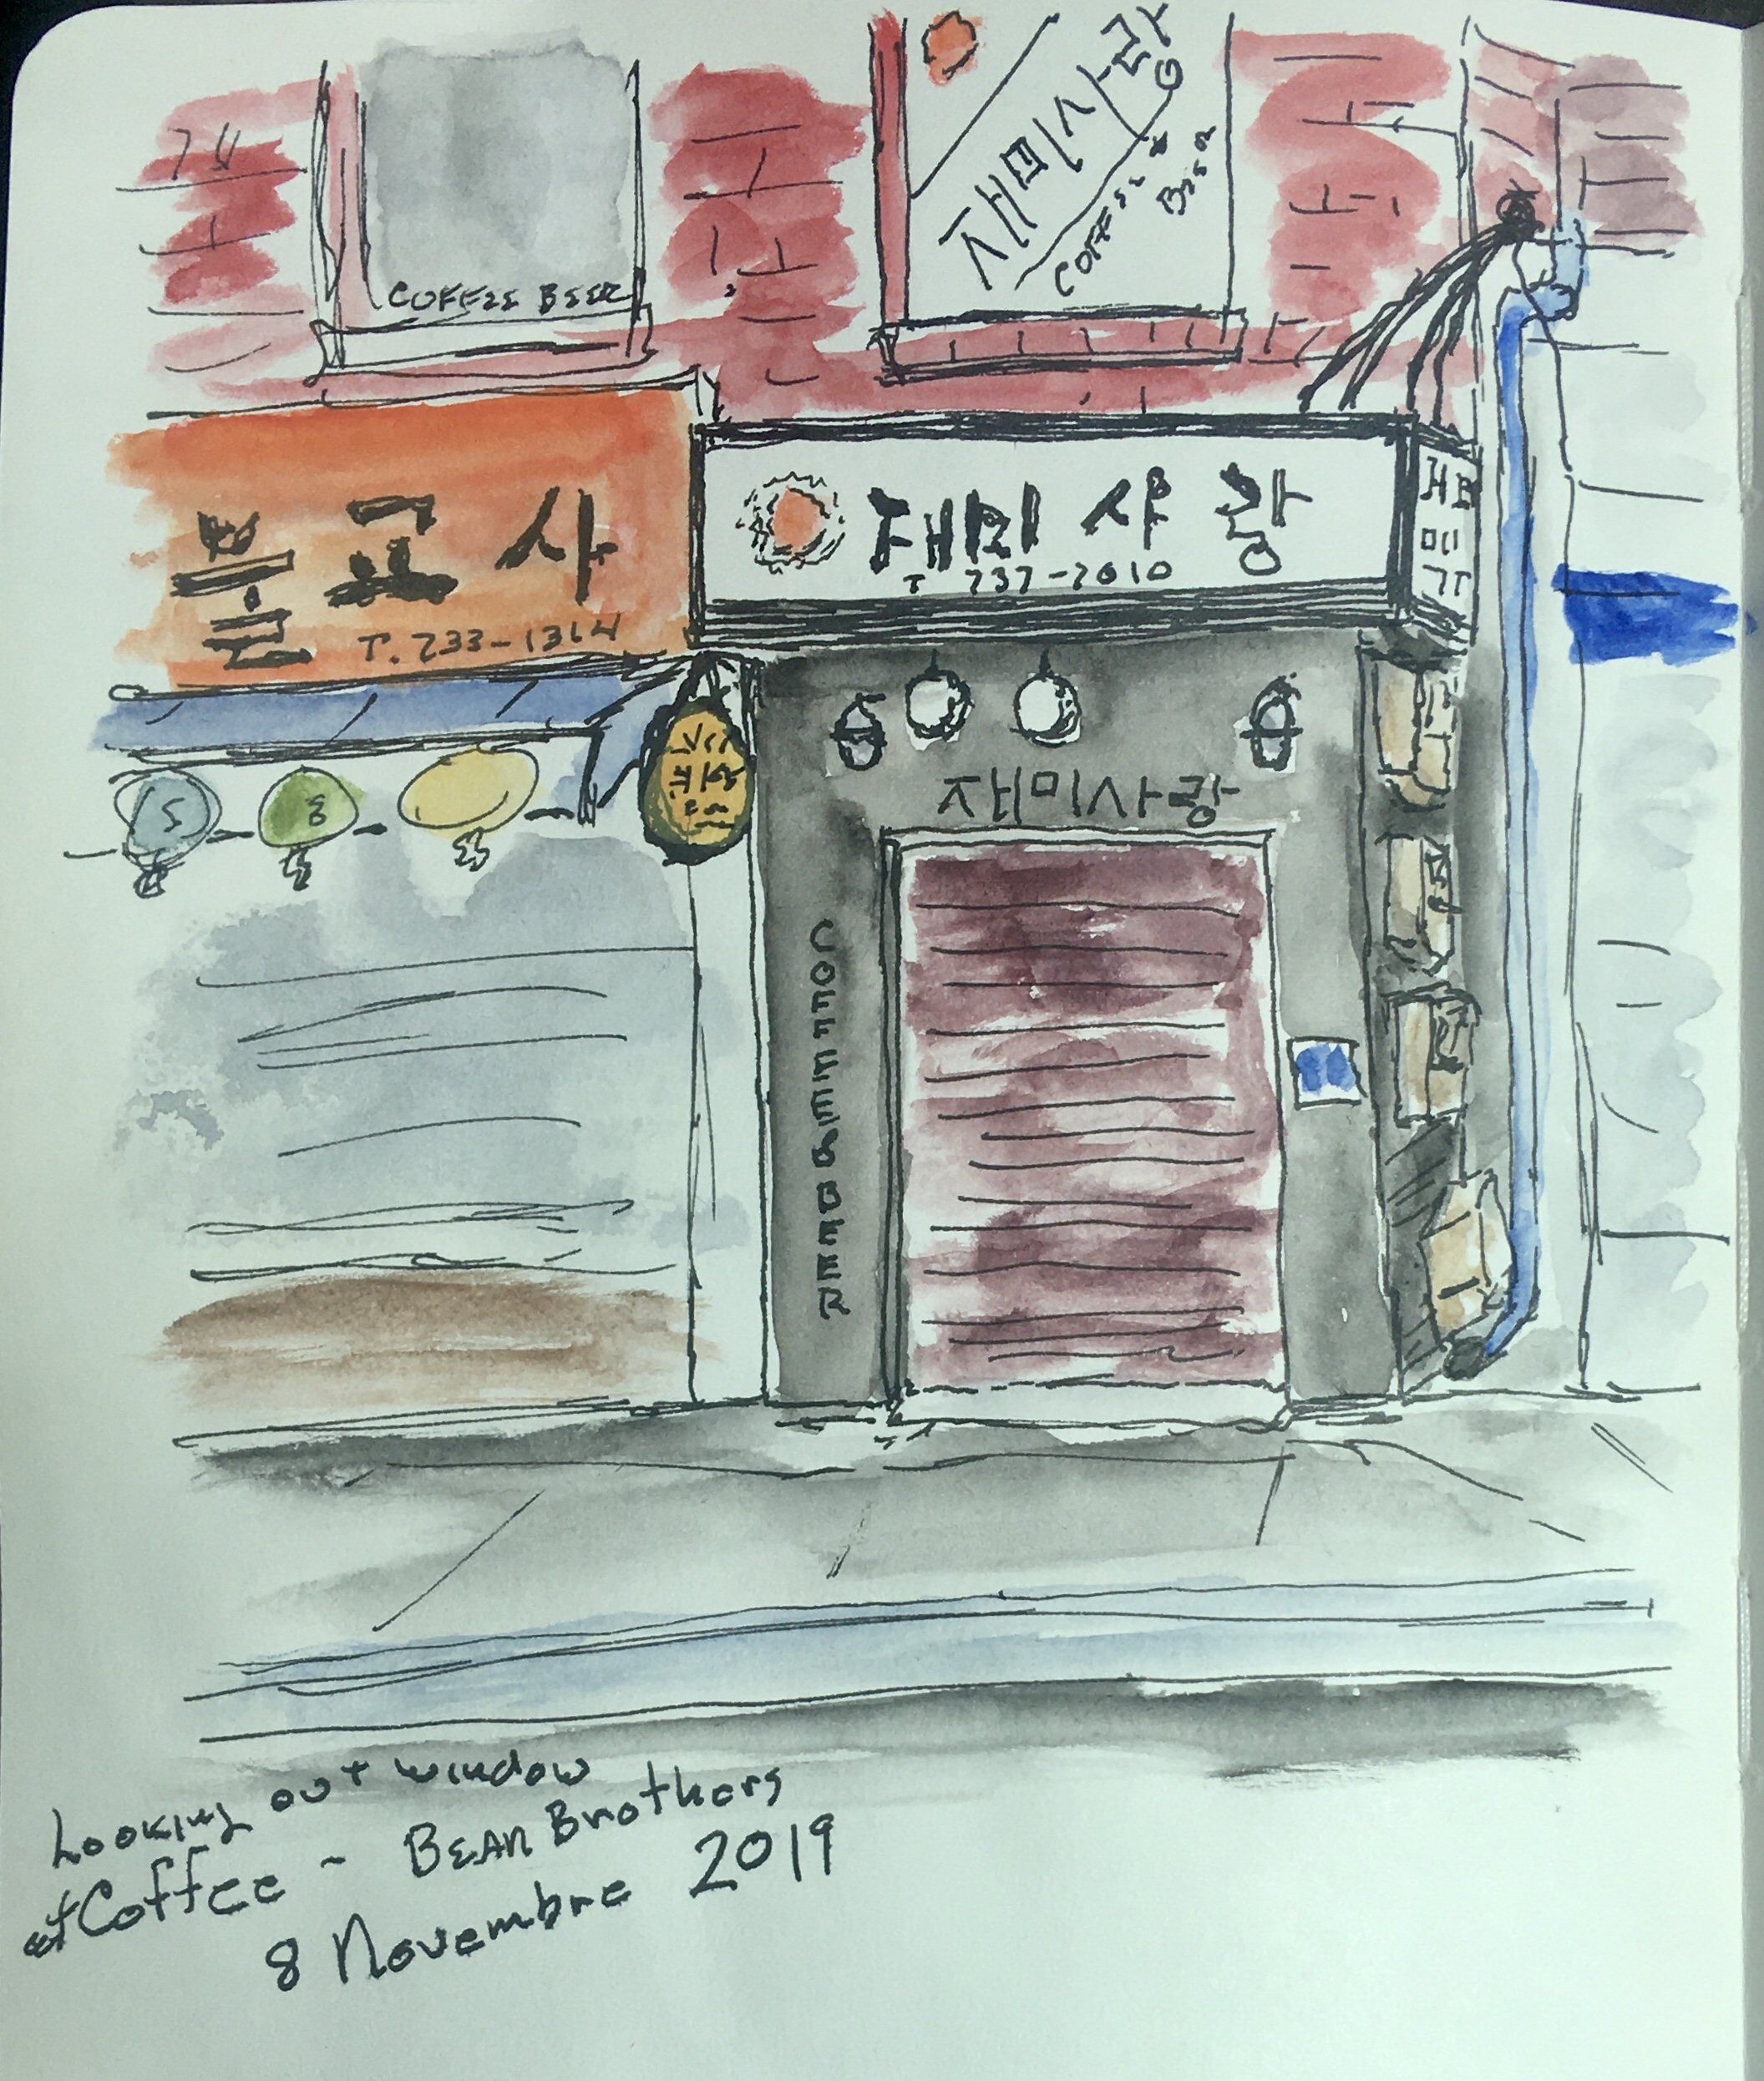 COFFEE BEER
재미사랑
COFFEE &
BEER
불교사
T. 733-1314
재미사랑
T 737-7010
재미사랑
COFFEE & BEER
Looking out window
at Coffee ~ BEAN Brothers
8 Novembre 2019